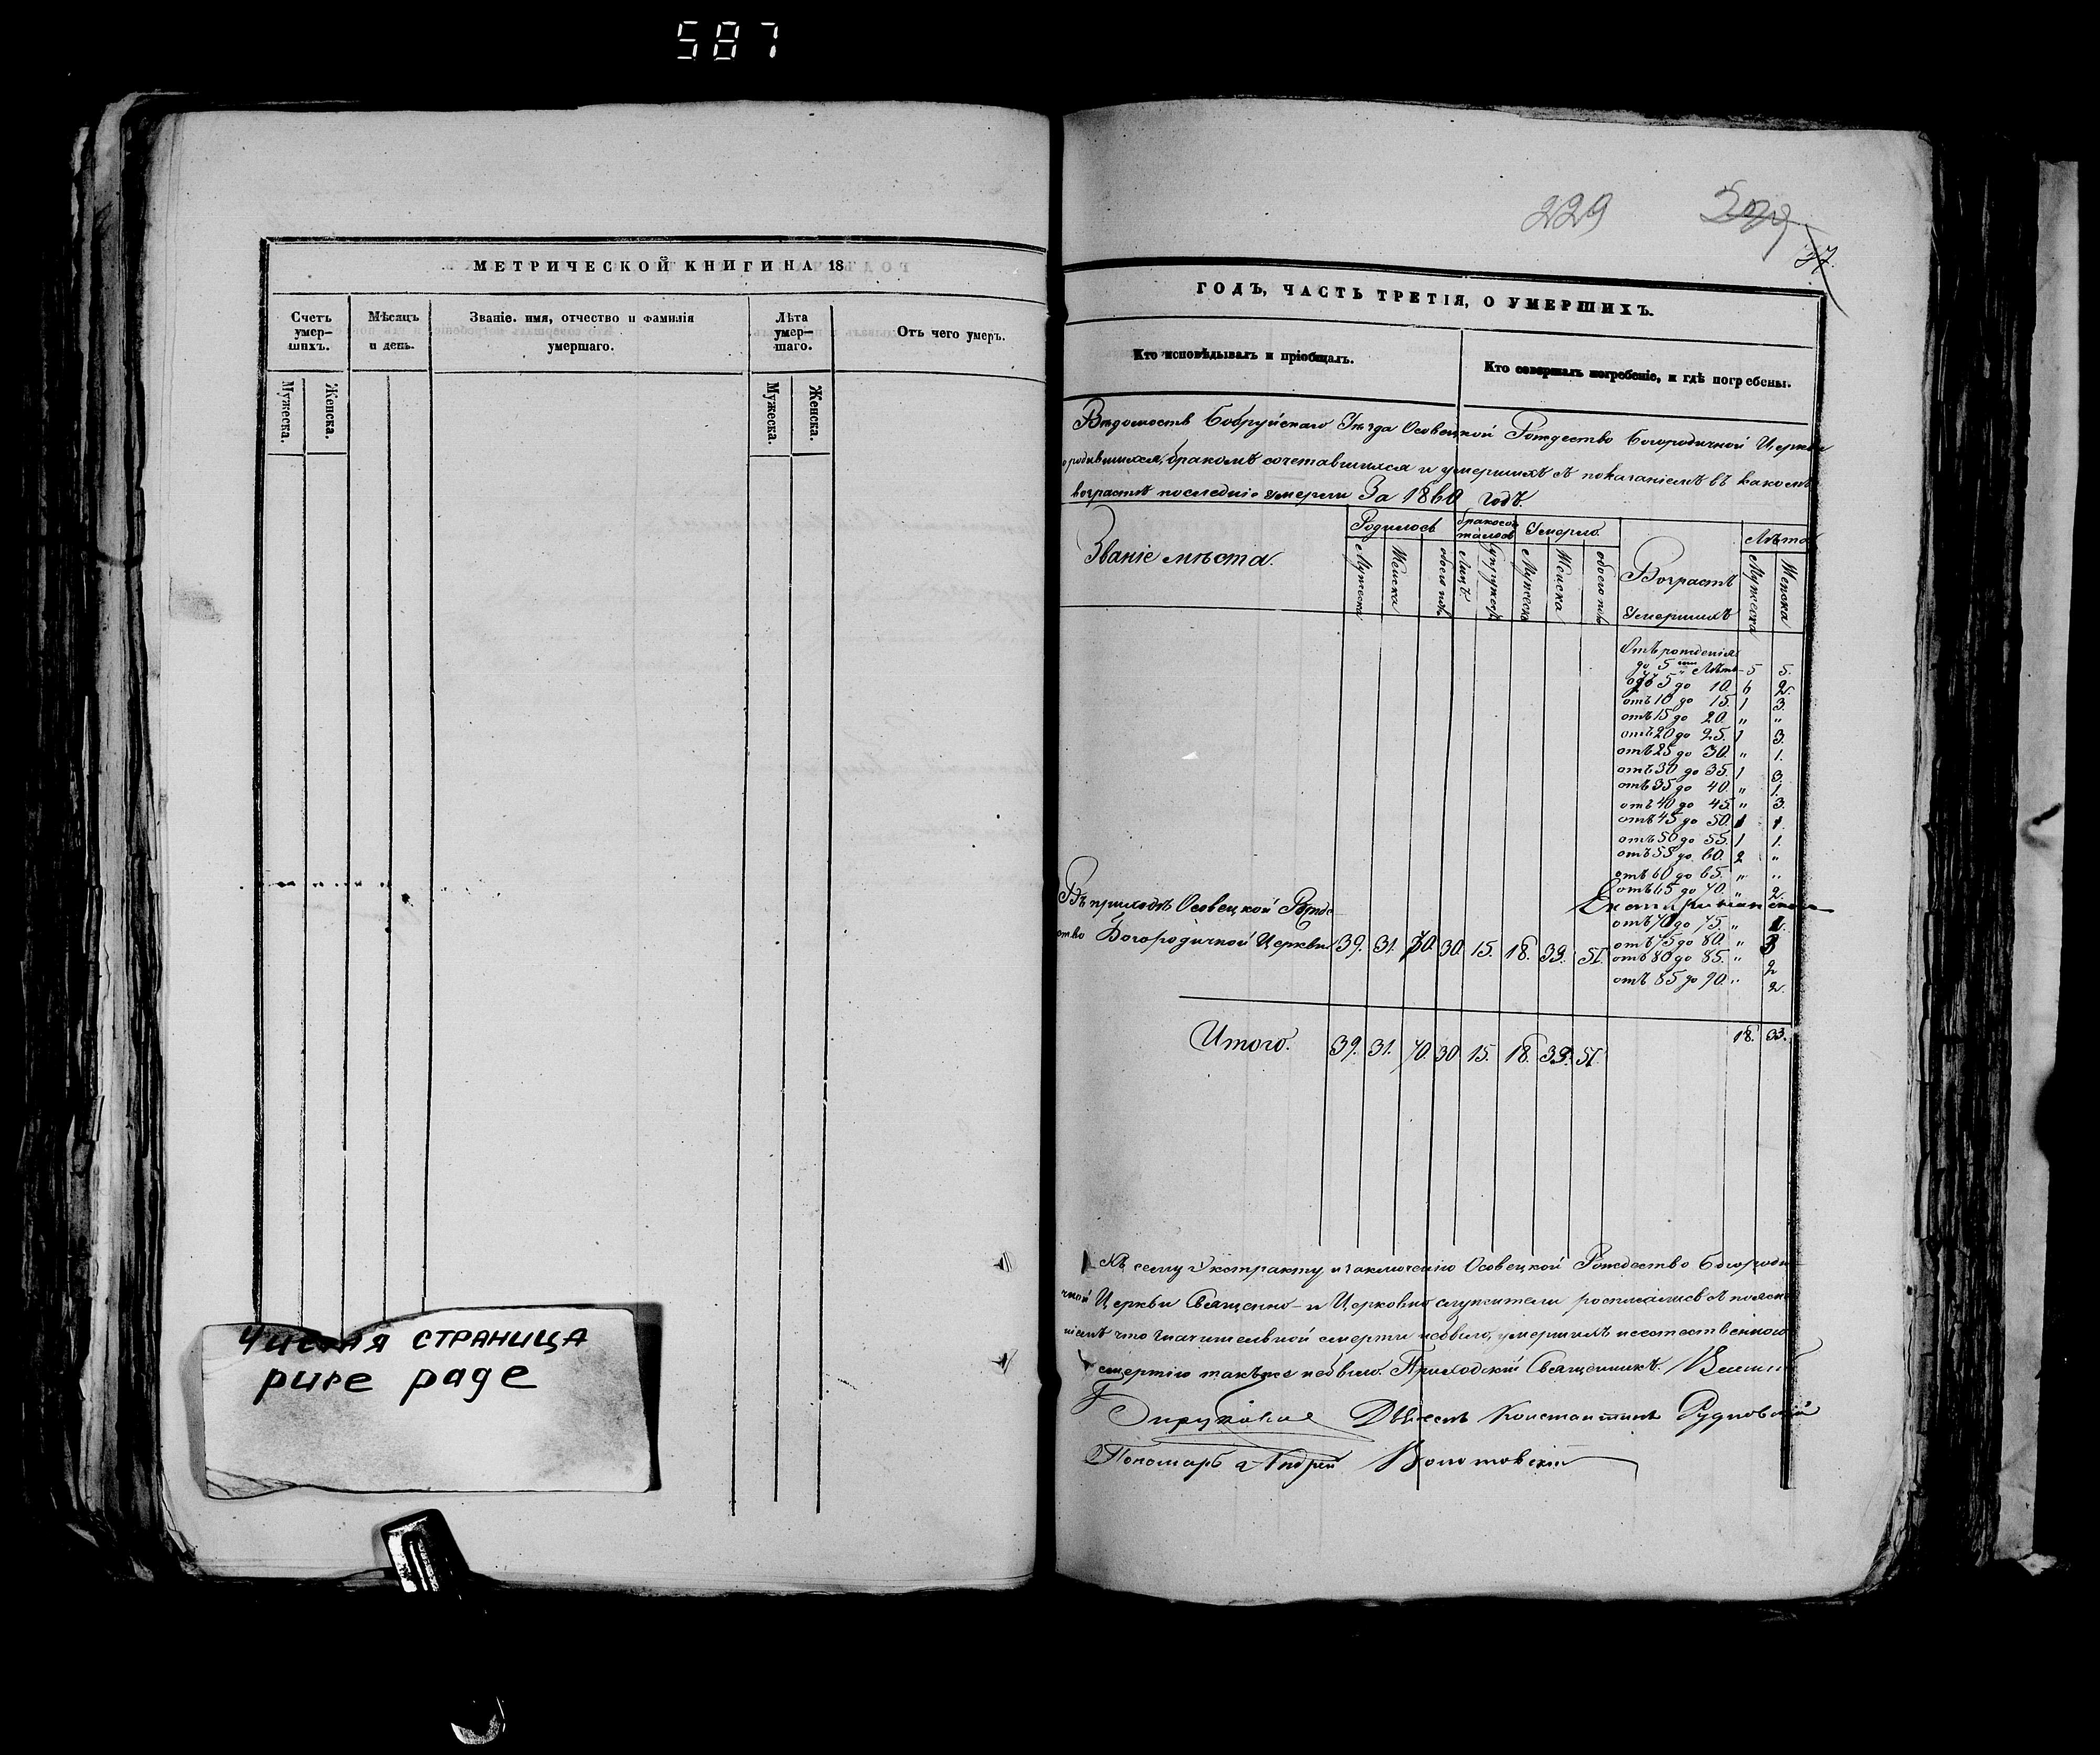 587
МЕТРИЧЕСКОЙ КНИГИ НА 18
Счетъ умер-шихъ.
Мѣсяцъ и день.
Званіе. имя, отчество и фамилія умершаго.
Лѣта умер-шаго.
Отъ чего умеръ.
Мужеска.
Женска.
Мужеска.
Женска.
Чистая страница
pure page
229
37.
ГОДЪ, ЧАСТЬ ТРЕТІЯ, О УМЕРШИХЪ.
Кто исповѣдывалъ и пріобщалъ.
Кто совершалъ погребеніе, и гдѣ погребены.
Вѣдомость Бобруйскаго Уѣзда Осовецкой Рождество Богородичной Церкви
о родившихся, бракомъ сочетавшихся и умершихъ съ показаніемъ въ какомъ
возрастѣ последніе умерли За 1860 годъ.
Званіе мѣста.
Родилось
Умерло.
Возрастъ Умершихъ
Лѣта
Мужеска
Женска
обоего пола
Лицъ
Супружествъ
Мужеска
Женска
обоего пола
Мужеска
Женска
Отъ рожденія
до 5 ти Лѣтъ - 5 5.
отъ 5 до 10. 6 2.
отъ 10 до 15. 1 3.
отъ 15 до 20. " "
отъ 20 до 25. 1 3.
отъ 25 до 30. " 1.
отъ 30 до 35. 1 3.
отъ 35 до 40. " 1.
отъ 40 до 45. " 3.
отъ 45 до 50. 1 1.
отъ 50 до 55. 1 1.
отъ 55 до 60. 2 "
отъ 60 до 65. " "
отъ 65 до 70. " 2.
отъ 70 до 75. "
отъ 75 до 80. "
отъ 80 до 85. " 2
отъ 85 до 90. " 2.
Въ приходѣ Осовецкой Рождество Богородичной Церкви 39. 31. 70. 30. 15. 18. 33. 51.
Итого. 39. 31. 70. 30. 15. 18. 33. 51. 18. 33.
Къ сему Экстракту и заключенію Осовецкой Рождество Богороди-
чной Церкви Священно- и Церковно служители росписались съ поясне-
ніемъ что значительной смерти небыло, умершихъ неестественною
смертію также небыло. Приходскій Священникъ
Дьячекъ Константинъ Рудковскій
Пономарь Андрей